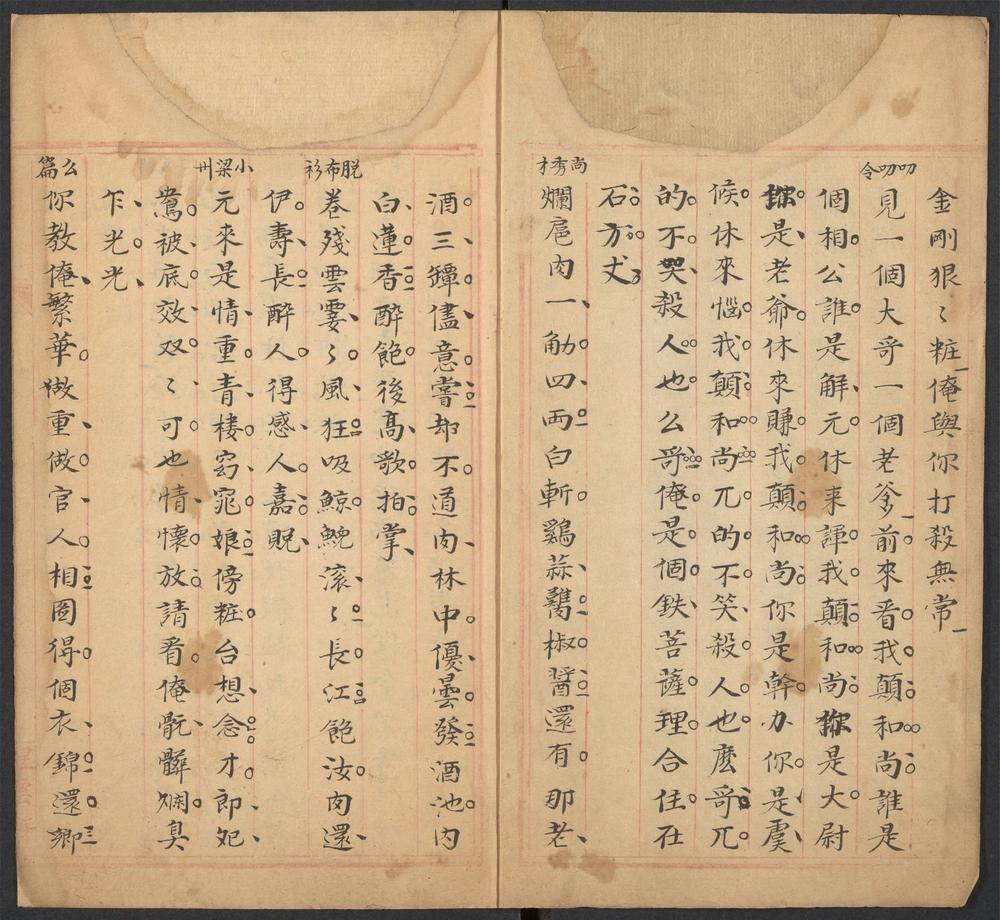 金剛狠〻粧俺與你打殺無常
叨叨令
見一個大哥一個老爹前來看我顛和尚誰是
個相公誰是解元休来諢我顛和尚你是大尉
你是老爺休來賺我顛和尚你是幹办你是虞
候休來惱我顛和尚兀的不笑殺人也麽哥兀
的不哭殺人也么哥俺是個鉄菩薩理合住在
石方丈
尚秀才
爛扈肉一觔四両白斬鷄蒜虀椒醤還有那老
酒三罈儘意嘗却不道肉林中優曇發酒池内
白蓮香醉飽後高歌拍掌
脱布衫
卷殘雲霎〻風狂吸鯨鯢滚〻長江飽汝肉還
伊壽長醉人得感人嘉貺
小梁州
元來是情重青楼窈窕娘傍粧台想念才郎処
鴛被底效双〻可也情懷放請看俺骯髒烟臭
乍光光
么篇
你教俺繁華做重做官人相圖得個衣錦還鄉